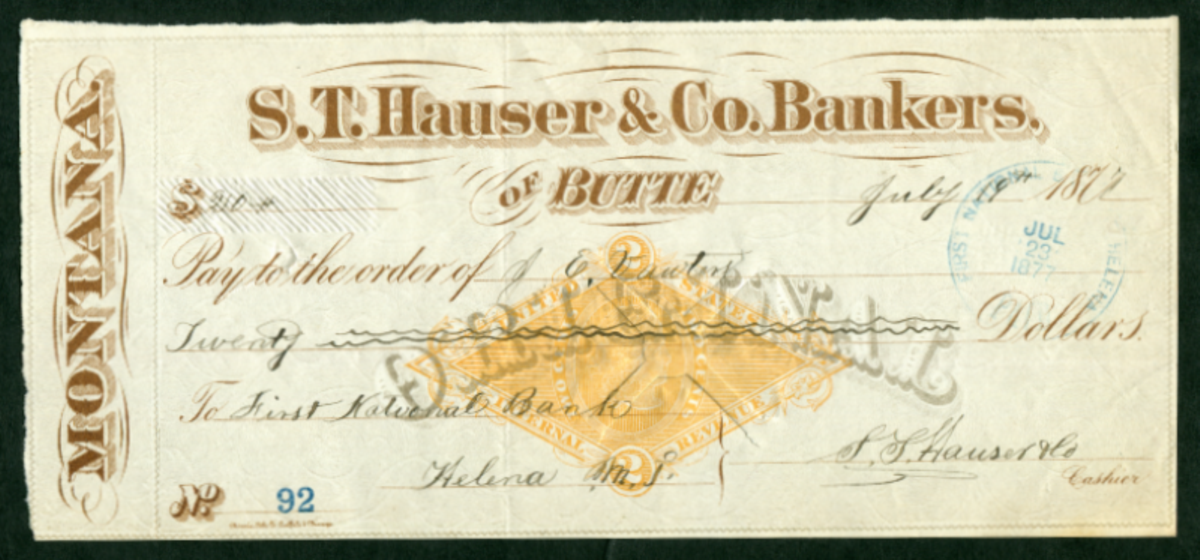 MONTANA.
S.T. Hauser & Co. Bankers.
OF BUTTE
July 19th 1877
$ 20
Pay to the order of J E,
Twenty Dollars.
ORIGINAL
To First National Bank
Helena M. T.
S. T. Hauser & Co
Cashier
No. 92
2
UNITED STATES
INTERNAL REVENUE
2
FIRST NATIONAL HELENA
JUL
23
1877